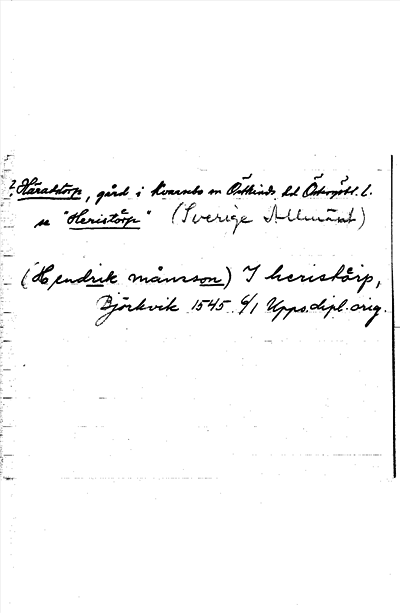 ? Häradstorp, gård i Kvarsebo sn Östkinds hd Östergötl. l.
se "Heristårp" (Sverige Allmänt)
(Hendrik månsson) I heristårp,
Björkvik 1545 6/1 Upps. dipl. orig.